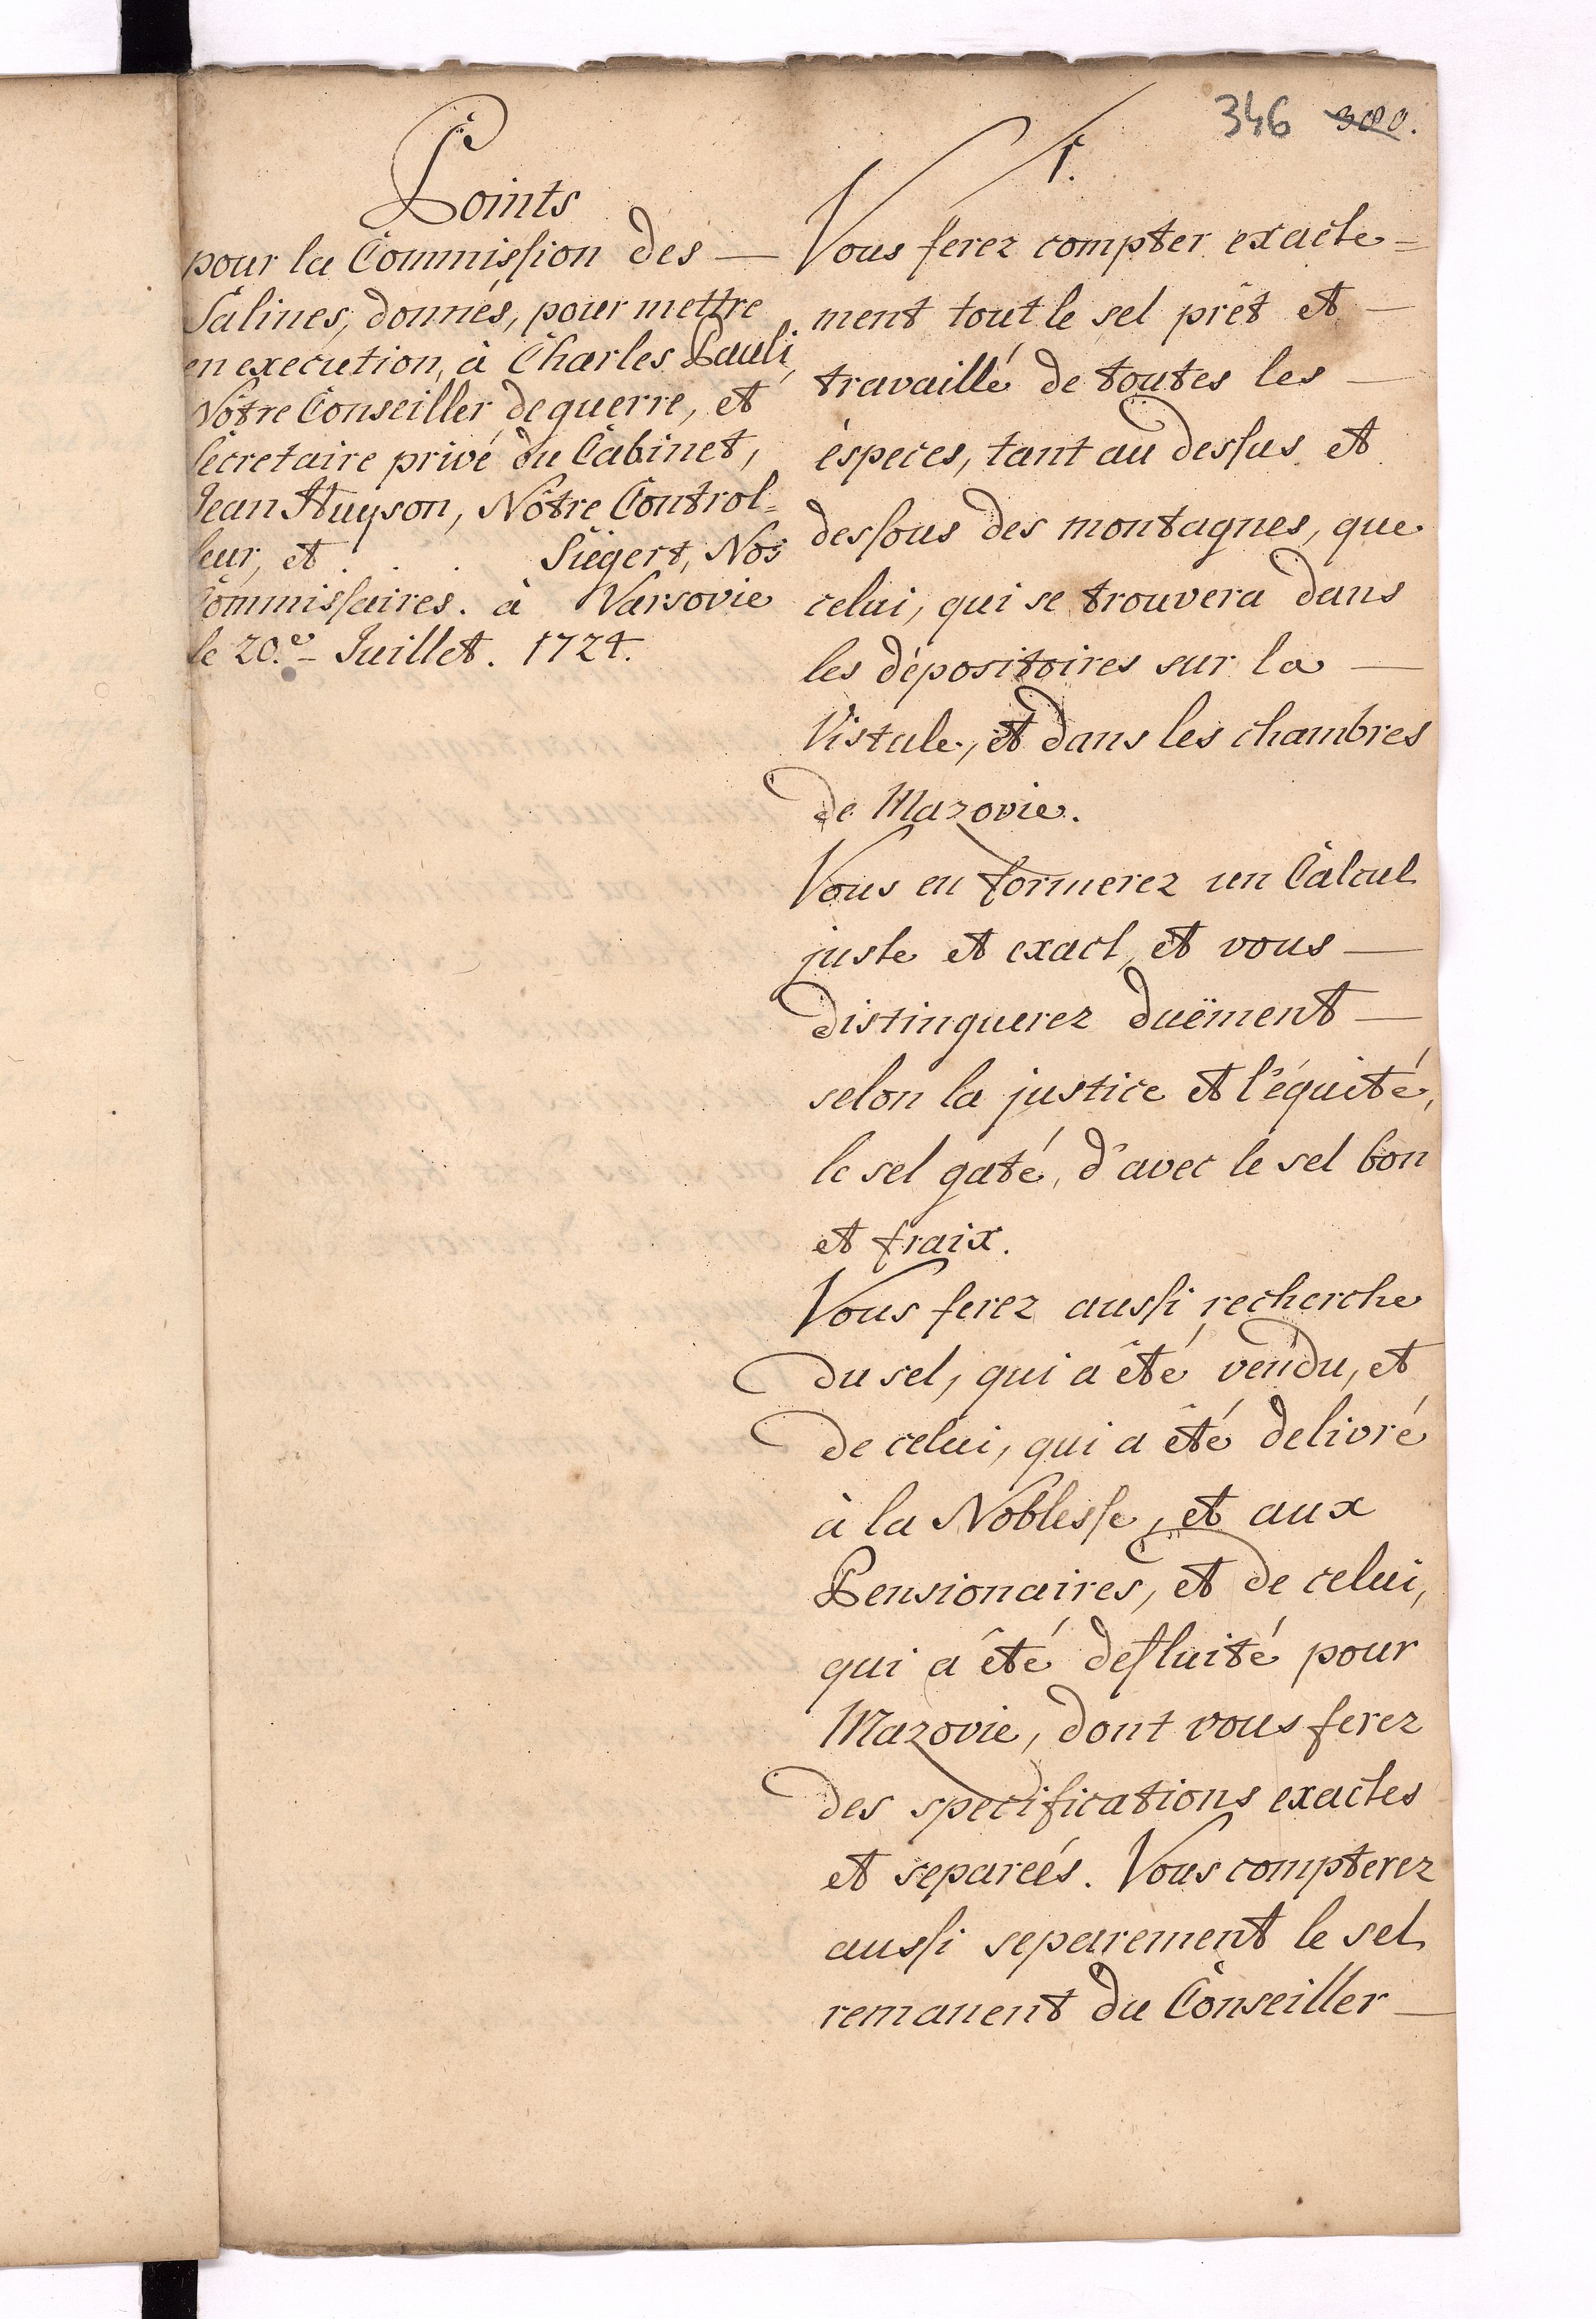 346 380.
Points
pour la Commission des —
Salines, donnés, pour mettre
en execution, à Charles Pauli,
Nôtre Conseiller de guerre, et
Secretaire privé du Cabinet,
Jean Huyson, Nôtre Control=
leur, et . . . Siegert, Nos
Commissaires. à Varsovie
le 20.e Juillet. 1724.
1.
Vous ferez compter exacte=
ment tout le sel prêt et —
travaillé de toutes les —
éspeces, tant au dessus et
dessous des montagnes, que
celui, qui se trouvera dans
les dépositoires sur la —
Vistule, et dans les chambres
de Mazovie.
Vous en formerez un Calcul
juste et exact, et vous —
distinguerez duëment —
selon la justice et l'équité,
le sel gaté, d'avec le sel bon
et fraix.
Vous ferez aussi recherche
du sel, qui a été vendu, et
de celui, qui a été delivré
à la Noblesse, et aux
Pensionaires, et de celui,
qui a été defluité pour
Mazovie, dont vous ferez
des specifications exactes
et separeés. Vous compterez
aussi separement le sel
remanent du Conseiller —